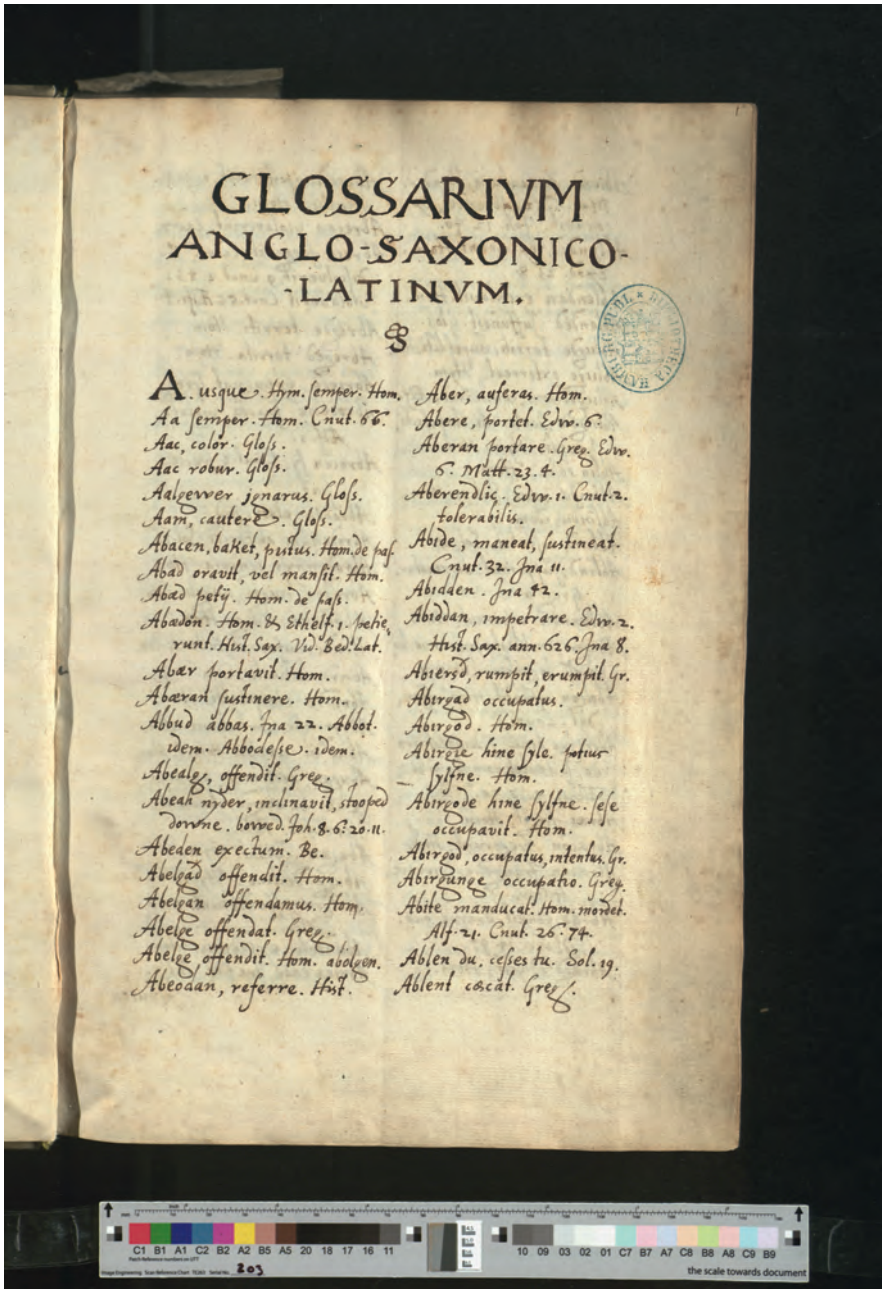 GLOSSARIVM
ANGLO-SAXONICO-
-LATINVM.
A. usque. Hym. semper. Hom.
Aa semper. Hom. Cnut. 66.
Aac, color. Gloss.
Aac robur. Gloss.
Aalgewer ignarus. Gloss.
Aam, cautere. Gloss.
Abacen, baket, pistus. Hom. de pas.
Abad oravit, vel mansit. Hom.
Abæd petij. Hom. de pass.
Abædon. Hom. & Ethelf. 1. petie,
runt. Hist. Sax. Vid. Bed. Lat.
Abær portavit. Hom.
Abæran sustinere. Hom.
Abbud abbas. Jna 22. Abbot.
idem. Abbodesse. idem.
Abealg, offendit. Greg.
Abeah nyder, inclinavit, stooped
downe. bowed. Joh. 8. 6. 20. 11.
Abeden exectum. Be.
Abelgad offendit. Hom.
Abelgan offendamus. Hom.
Abelge offendat. Greg.
Abelge, offendit. Hom. abolgen.
Abeodan, referre. Hist.
Aber, auferas. Hom.
Abere, portet. Edw. 6.
Aberan portare. Greg. Edw.
6. Matt. 23. 4.
Aberendlic. Edw. 1. Cnut. 2.
tolerabilis.
Abide, maneat, sustineat.
Cnut. 32. Jna 11.
Abidden. Jna 42.
Abiddan, impetrare. Edw. 2.
Hist. Sax. ann. 626. Jna 8.
Abiersd, rumpit, erumpit. Gr.
Abirgad occupatus.
Abirgod. Hom.
Abirgie hine syle. potius
sylfne. Hom.
Abirgode hine sylfne. sese
occupavit. Hom.
Abirgod, occupatus, intentus. Gr.
Abirgunge occupatio. Greg.
Abite manducat. Hom. mordet.
Alf. 21. Cnut. 26. 74.
Ablen du, cesses tu. Sol. 19.
Ablent cæcat. Greg.
C1 B1 A1 C2 B2 A2 B5 A5 20 18 17 16 11
10 09 03 02 01 C7 B7 A7 C8 B8 A8 C9 B9
203
the scale towards document